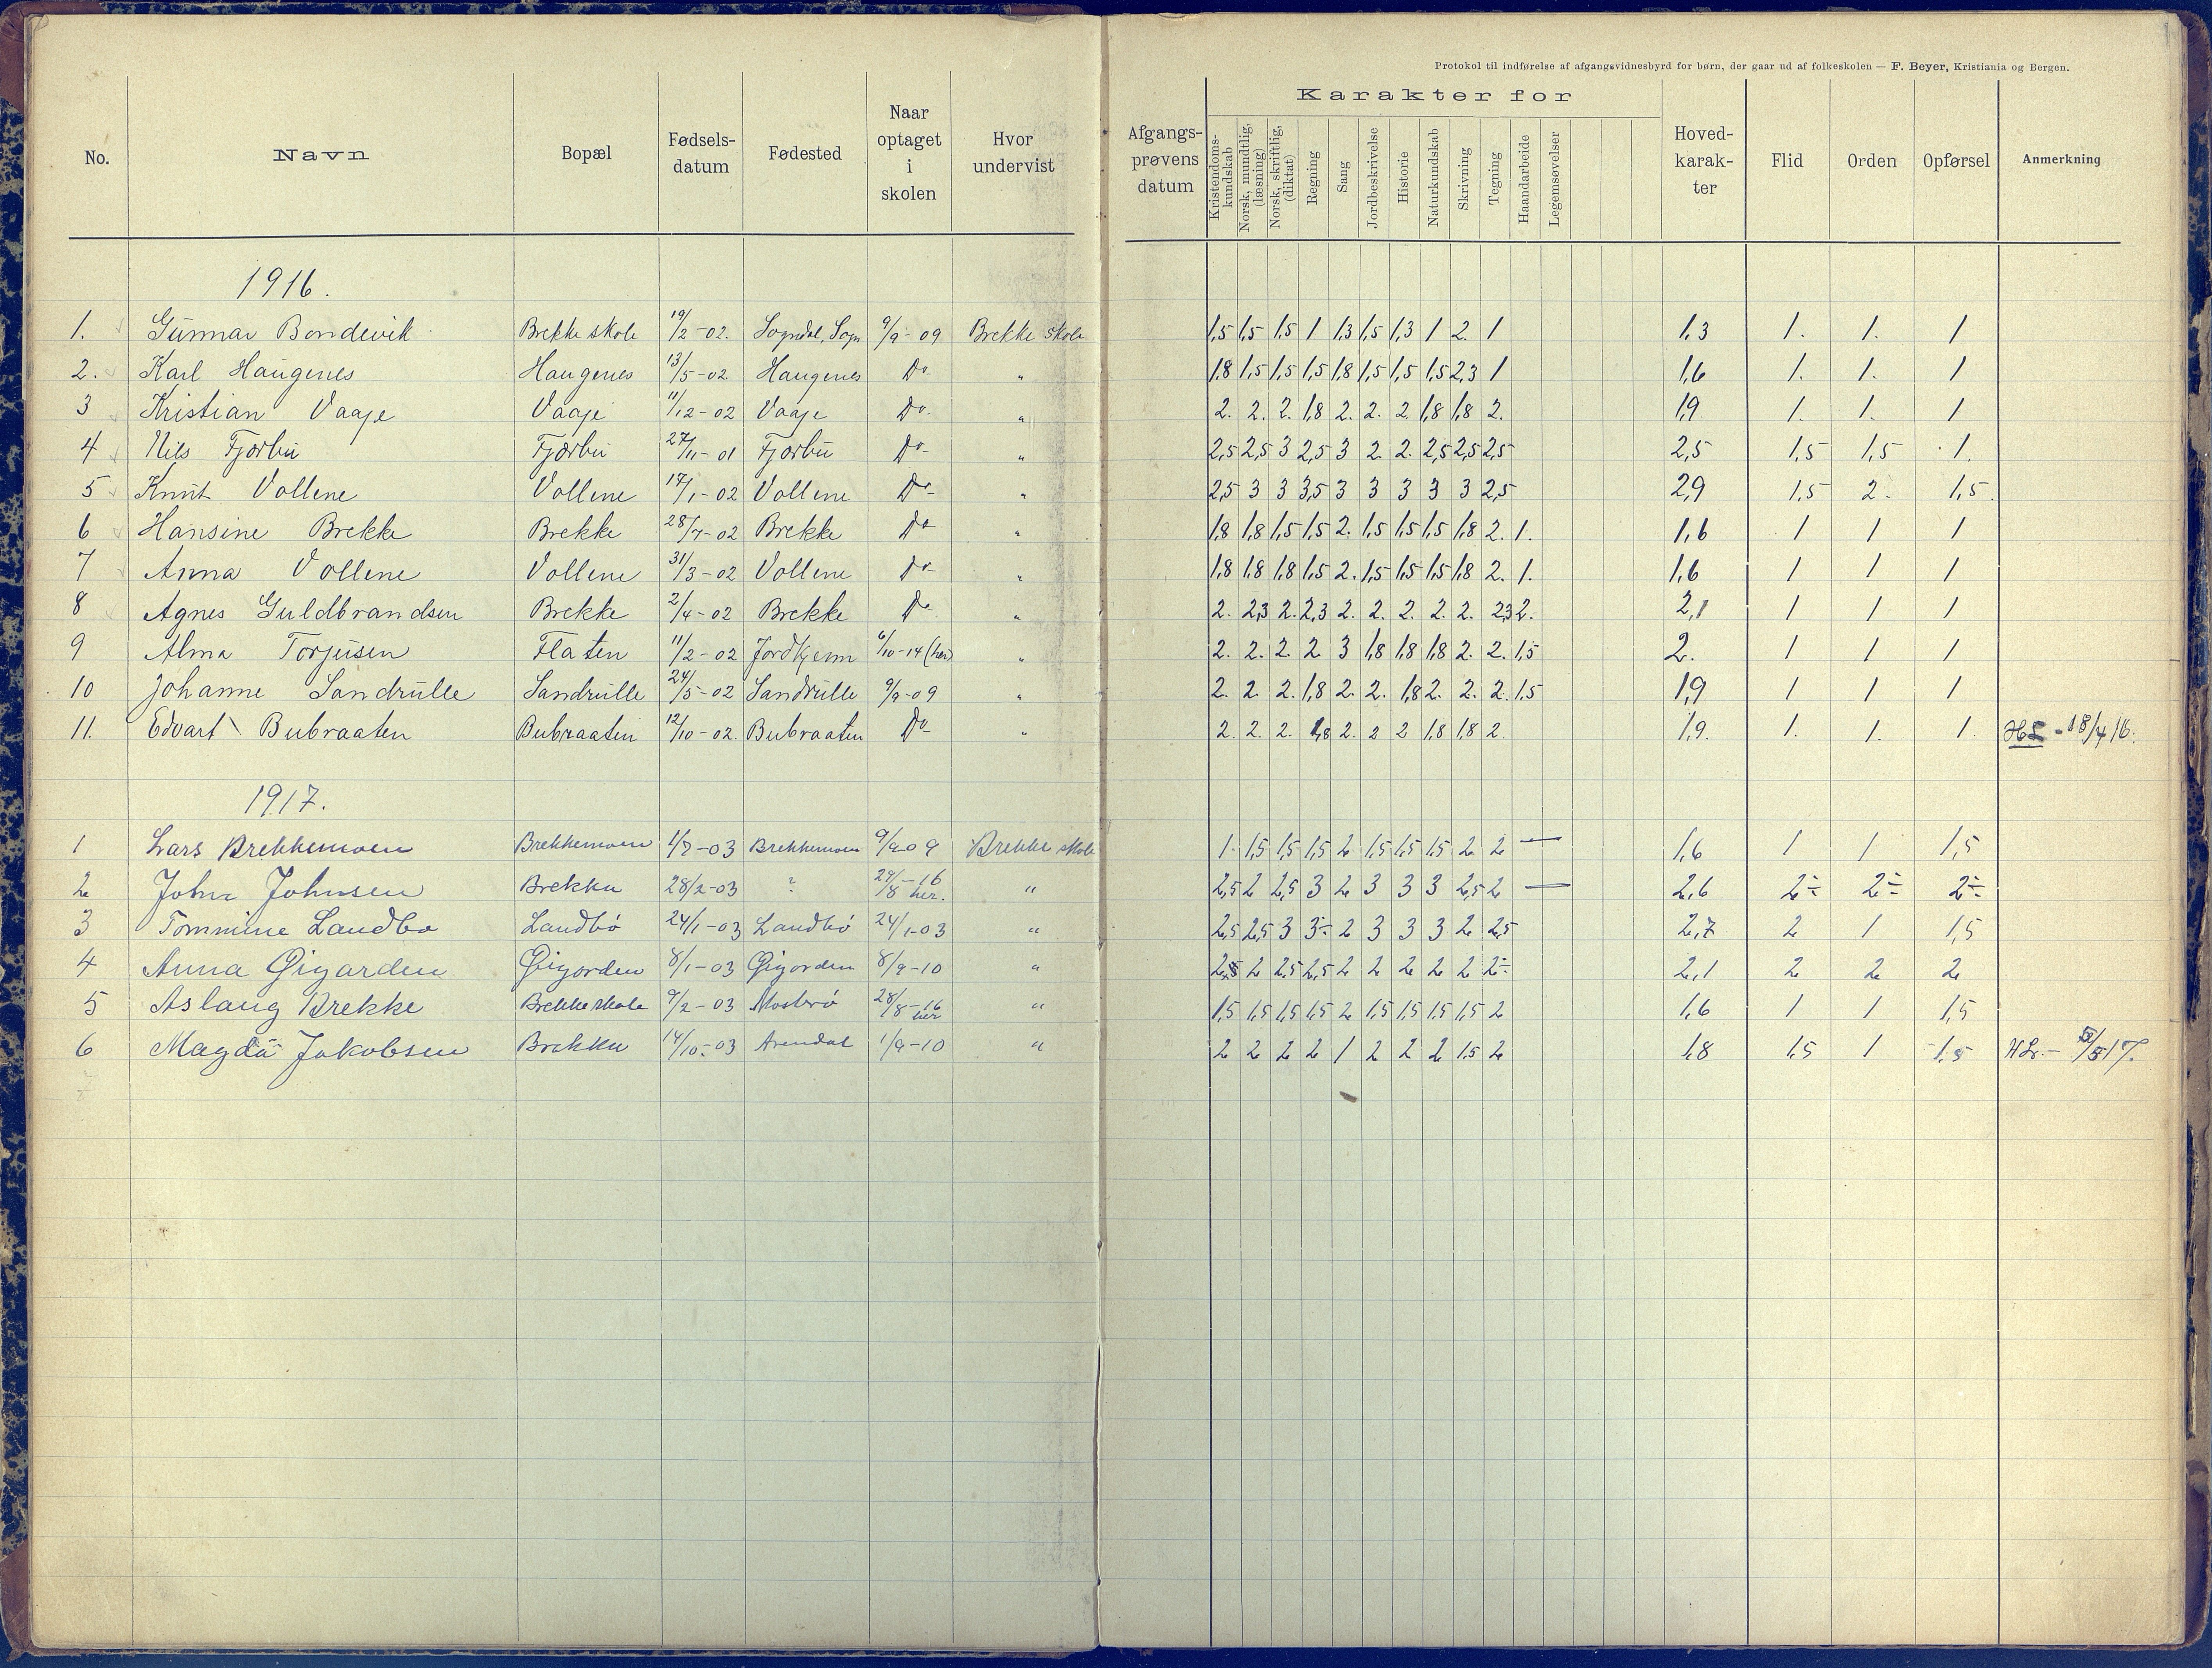 Protokol til indførelse af afgangsvidnesbyrd for børn, der gaar ud af folkeskolen — F. Beyer, Kristiania og Bergen.
No. Navn Bopæl Fødselsdatum Fødested Naar optaget i skolen Hvor undervist Afgangsprøvens datum Karakter for Kristendomskundskab Norsk, mundtlig, (læsning) Norsk, skriftlig, (diktat) Regning Sang Jordbeskrivelse Historie Naturkundskab Skrivning Tegning Haandarbeide Legemsøvelser Hovedkarakter Flid Orden Opførsel Anmerkning
1916.
1. Gunnar Bondevik Brekke skole 19/2-02. Sogndal, Sogn 9/9-09 Brekke skole 1,5 1,5 1,5 1 1,3 1,5 1,3 1 2. 1 1,3 1. 1. 1
2. Karl Haugenes Haugenes 13/5-02 Haugenes Do- " 1,8 1,5 1,5 1,5 1,8 1,5 1,5 1,5 2,3 1 1,6 1. 1. 1
3 Kristian Vaaje Vaaje 11/12-02 Vaaje Do- " 2. 2. 2. 1,8 2. 2. 2 1,8 1,8 2. 1,9 1. 1. 1
4 Nils Fjærbu Fjærbu 27/11-01 Fjærbu Do- " 2,5 2,5 3 2,5 3 2 2. 2,5 2,5 2,5 2,5 1,5 1,5 1.
5 Knut Vollene Vollene 17/1-02 Vollene Do- " 2,5 3 3 3,5 3 3 3 3 3 2,5 2,9 1,5 2. 1,5.
6 Hansine Brekke Brekke 28/7-02 Brekke Do- " 1,8 1,8 1,5 1,5 2. 1,5 1,5 1,5 1,8 2. 1. 1,6 1 1 1
7 Anna Vollene Vollene 31/3-02 Vollene Do- " 1,8 1,8 1,8 1,5 2. 1,5 1,5 1,5 1,8 2. 1. 1,6 1 1 1
8 Agnes Guldbrandsen Brekke 2/4-02 Brekke Do- " 2. 2,3 2. 2,3 2. 2. 2. 2. 2. 2,3 2. 2,1 1 1 1
9 Alma Torjusen Flaten 11/2-02 Jordkjenn 6/10-14 (her) " 2. 2. 2. 2 3 1,8 1,8 1,8 2. 2. 1,5 2. 1 1 1
10 Johanne Sandrulle Sandrulle 24/5-02 Sandrulle 9/9-09 " 2. 2 2. 1,8 2. 2. 1,8 2. 2. 2. 1,5 1,9 1 1 1
11. Edvart Bubraaten Bubraaten 12/10-02. Bubraaten Do- " 2. 2. 2. 1,8 2. 2 2 1,8 1,8 2. 1,9. 1. 1. 1. HL - 18/4 16.
1917.
1 Lars Brekkemoen Brekkemoen 1/7-03 Brekkemoen 9/9-09 Brekke skole 1. 1,5 1,5 1,5 2 1,5 1,5 1,5 2 2 — 1,6 1 1 1,5
2 John Johnsen Brekka 28/2-03 ? 29/8-16 her. " 2,5 2 2,5 3 2 3 3 3 2,5 2 — 2,6 2÷ 2÷ 2÷
3 Tommine Landbø Landbø 24/1-03 Landbø 24/1-03 " 2,5 2,5 3 3÷ 2 3 3 3 2 2,5 2,7 2 1 1,5
4 Anna Øigarden Øigarden 8/1-03 Øigarden 8/9-10 " 2,5 2 2,5 2,5 2 2 2 2 2 2÷ 2,1 2 2 2
5 Aslaug Brekke Brekke skole 9/2-03 28/8-16 her " 1,5 1,5 1,5 1,5 2 1,5 1,5 1,5 1,5 2 1,6 1 1 1,5
6 Magda Jakobsen Brekka 14/10-03 Arendal 1/9-10 " 2 2 2 2 1 2 2 2 1,5 2 1,8 1,5 1 1,5